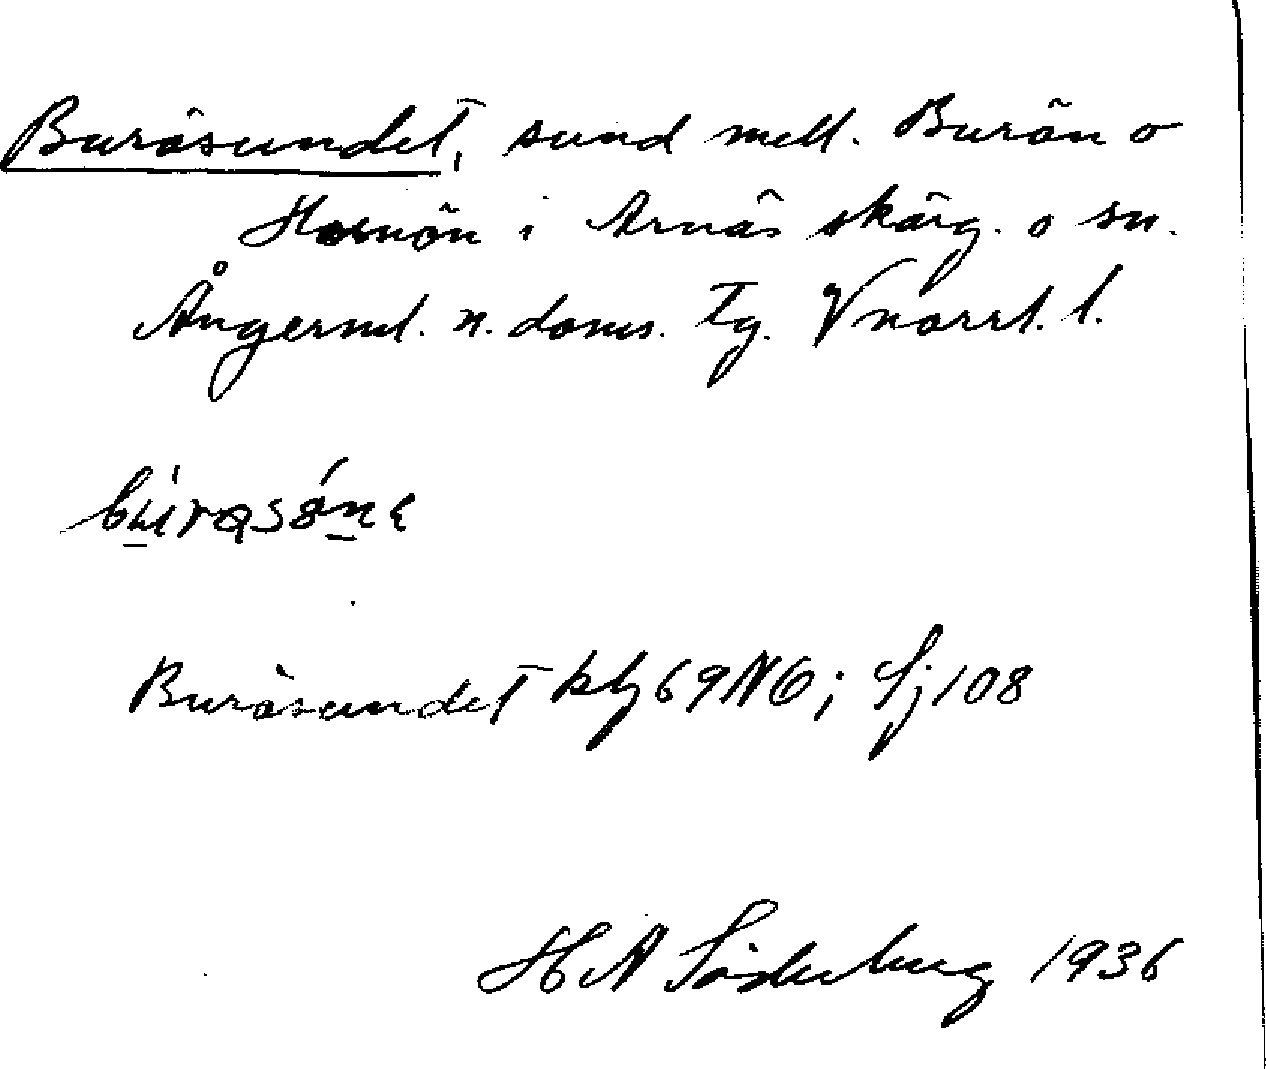 Buräsundet, sund mell. Burön o
Hornön i Arnäs skärg. o sn.
Ångerml. n. doms. Tg. Vnorrl. l.
Buräsundet kbl 69 NO; Sj 108
H A Söderberg 1936